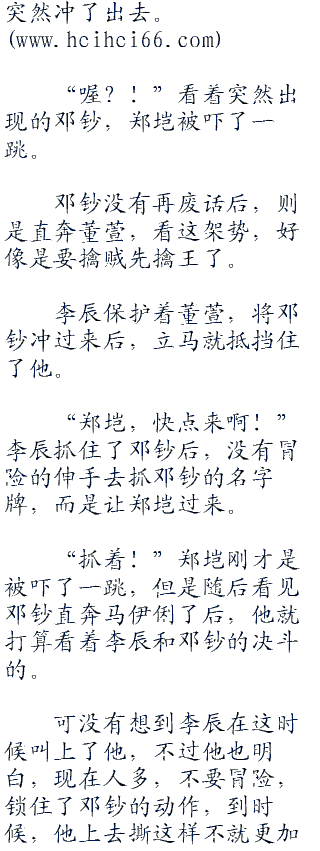 突然冲了出去。
(www.hcihci66.com)
“喔？！”看着突然出
现的邓钞，郑垲被吓了一
跳。
邓钞没有再废话后，则
是直奔董萱，看这架势，好
像是要擒贼先擒王了。
李辰保护着董萱，将邓
钞冲过来后，立马就抵挡住
了他。
“郑垲，快点来啊！”
李辰抓住了邓钞后，没有冒
险的伸手去抓邓钞的名字
牌，而是让郑垲过来。
“抓着！”郑垲刚才是
被吓了一跳，但是随后看见
邓钞直奔马伊俐了后，他就
打算看着李辰和邓钞的决斗
的。
可没有想到李辰在这时
候叫上了他，不过他也明
白，现在人多，不要冒险，
锁住了邓钞的动作，到时
候，他上去撕这样不就更加